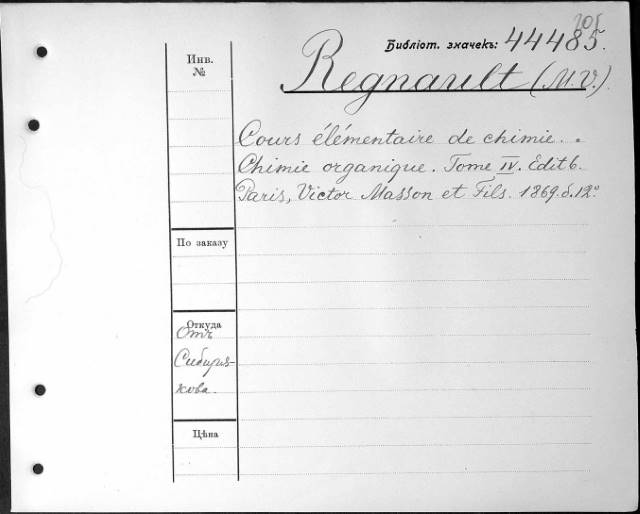 205
Библіот. значекъ: 44485.
Инв.
№
Regnault (M.V.)
Cours élémentaire de chimie.
Chimie organique. Tome IV. Edit 6.
Paris, Victor Masson et Fils. 1869. d. 12°
По заказу
Откуда
Отъ
Сибиря-
кова.
Цѣна